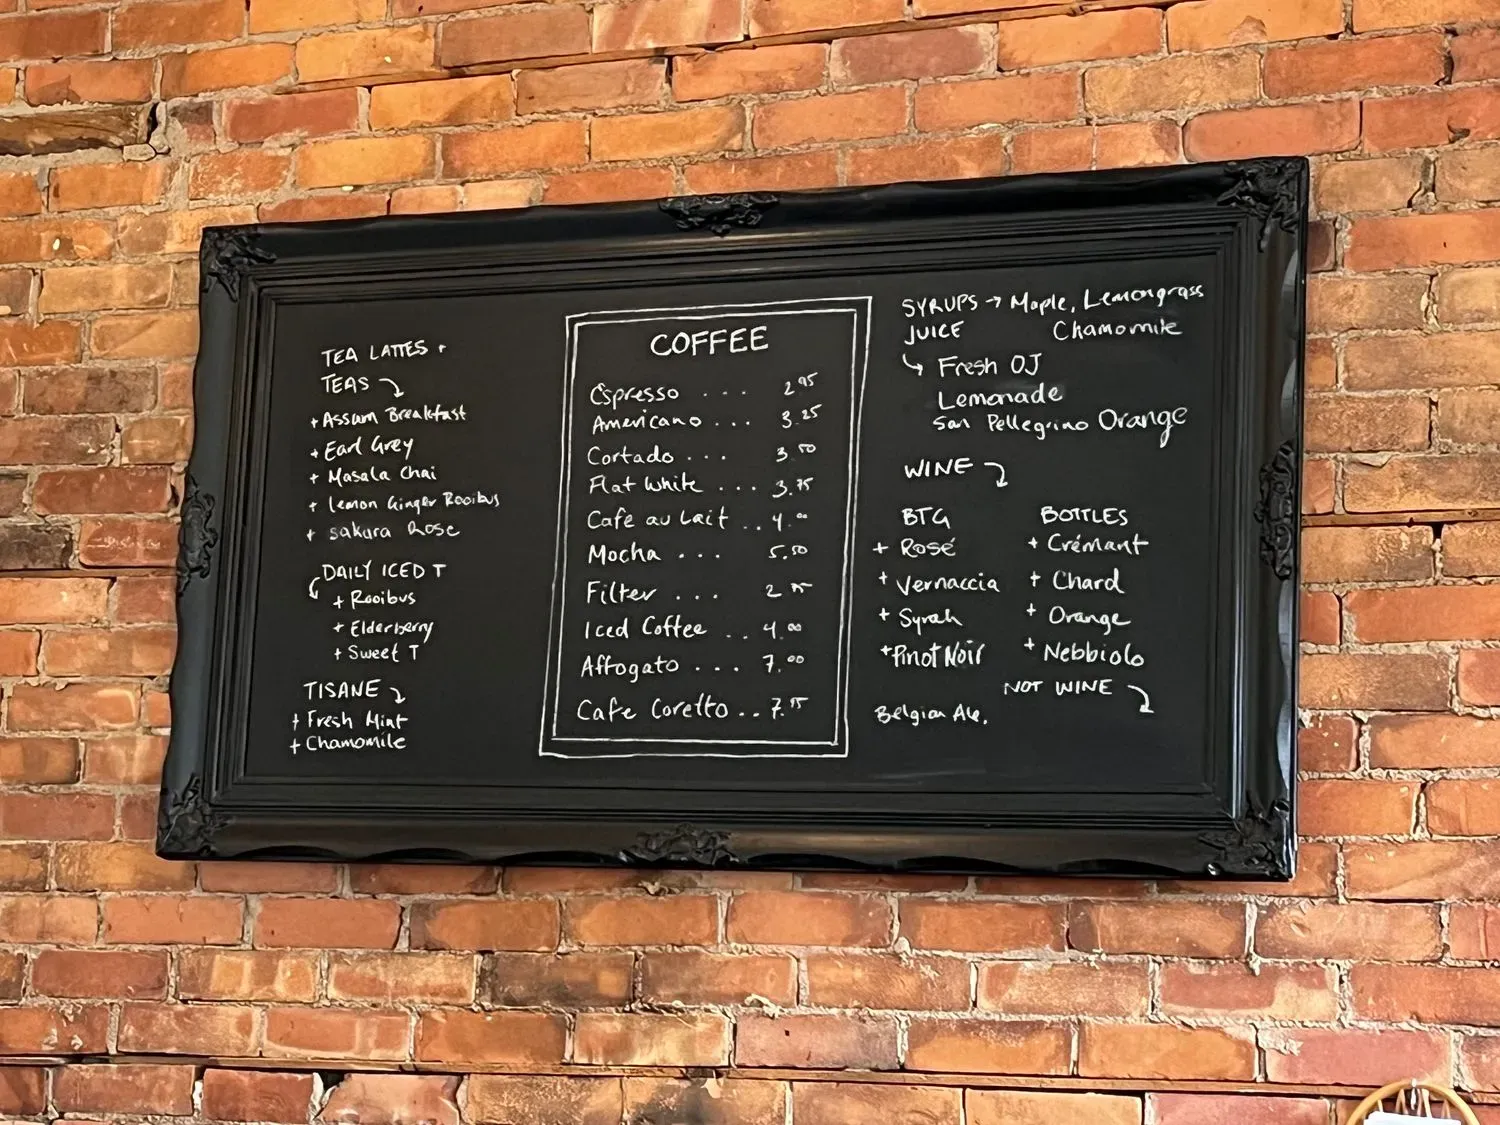 TEA LATTES +
TEAS
+ Assum Breakfast
+ Earl Grey
+ Masala Chai
+ Lemon Ginger Rooibus
+ Sakura Rose
DAILY ICED T
+ Rooibus
+ Elderberry
+ Sweet T
TISANE
+ Fresh Mint
+ Chamomile
COFFEE
Espresso . . . 2.95
Americano . . . 3.25
Cortado . . . 3.50
Flat White . . . 3.75
Cafe au Lait . . 4.00
Mocha . . . 5.50
Filter . . . 2.75
Iced Coffee . . 4.00
Affogato . . . 7.00
Cafe Coretto . . 7.75
SYRUPS → Maple, Lemongrass
Chamomile
JUICE
Fresh OJ
Lemonade
San Pellegrino Orange
WINE
BTG
+ Rosé
+ Vernaccia
+ Syrah
+ Pinot Noir
BOTTLES
+ Crémant
+ Chard
+ Orange
+ Nebbiolo
NOT WINE
Belgian Ale.